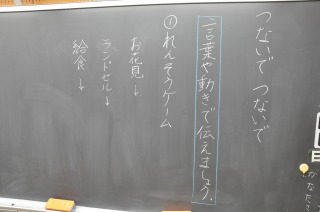 つないで つないで
言葉や動きで伝えましょう。
①れんそうゲーム
お花見↓
ランドセル↓
給食↓